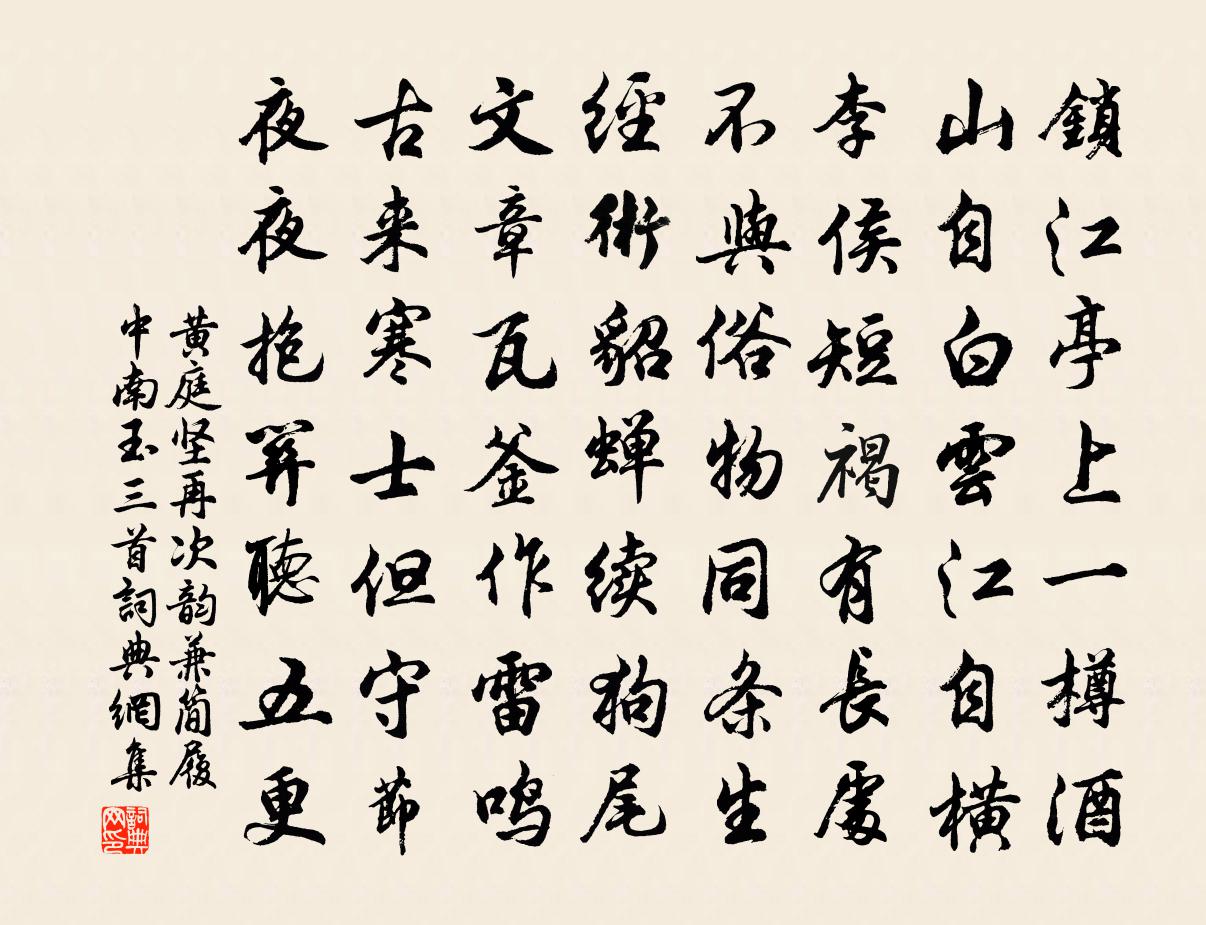 鎖江亭上一樽酒
山自白雲江自横
李侯短褐有長處
不與俗物同条生
經術貂蝉续狗尾
文章瓦釜作雷鸣
古来寒士但守節
夜夜抱關聽五更
黄庭坚再次韵兼简履
中南玉三首詞典網集
詞典
网印